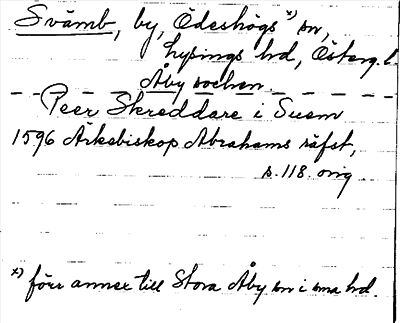 Svämb, by, Ödeshögs *) sn,
Lysings hd, Österg. l.
Åby socken.
Peer Skreddare i Suem
1596 Ärkebiskop Abrahams räfst,
s. 118. orig
*) förr annex till Stora Åby sn i sma hd.